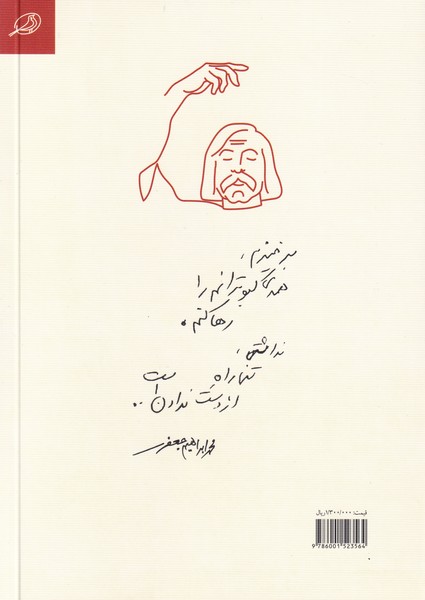 همه‌ی کبوترانم را
رها کنم.
نداشتن،
تنها راه
از دست ندادن است..
محمدابراهیم جعفری
قیمت: ۱/۳۰۰/۰۰۰ ریال
9 786001 523564